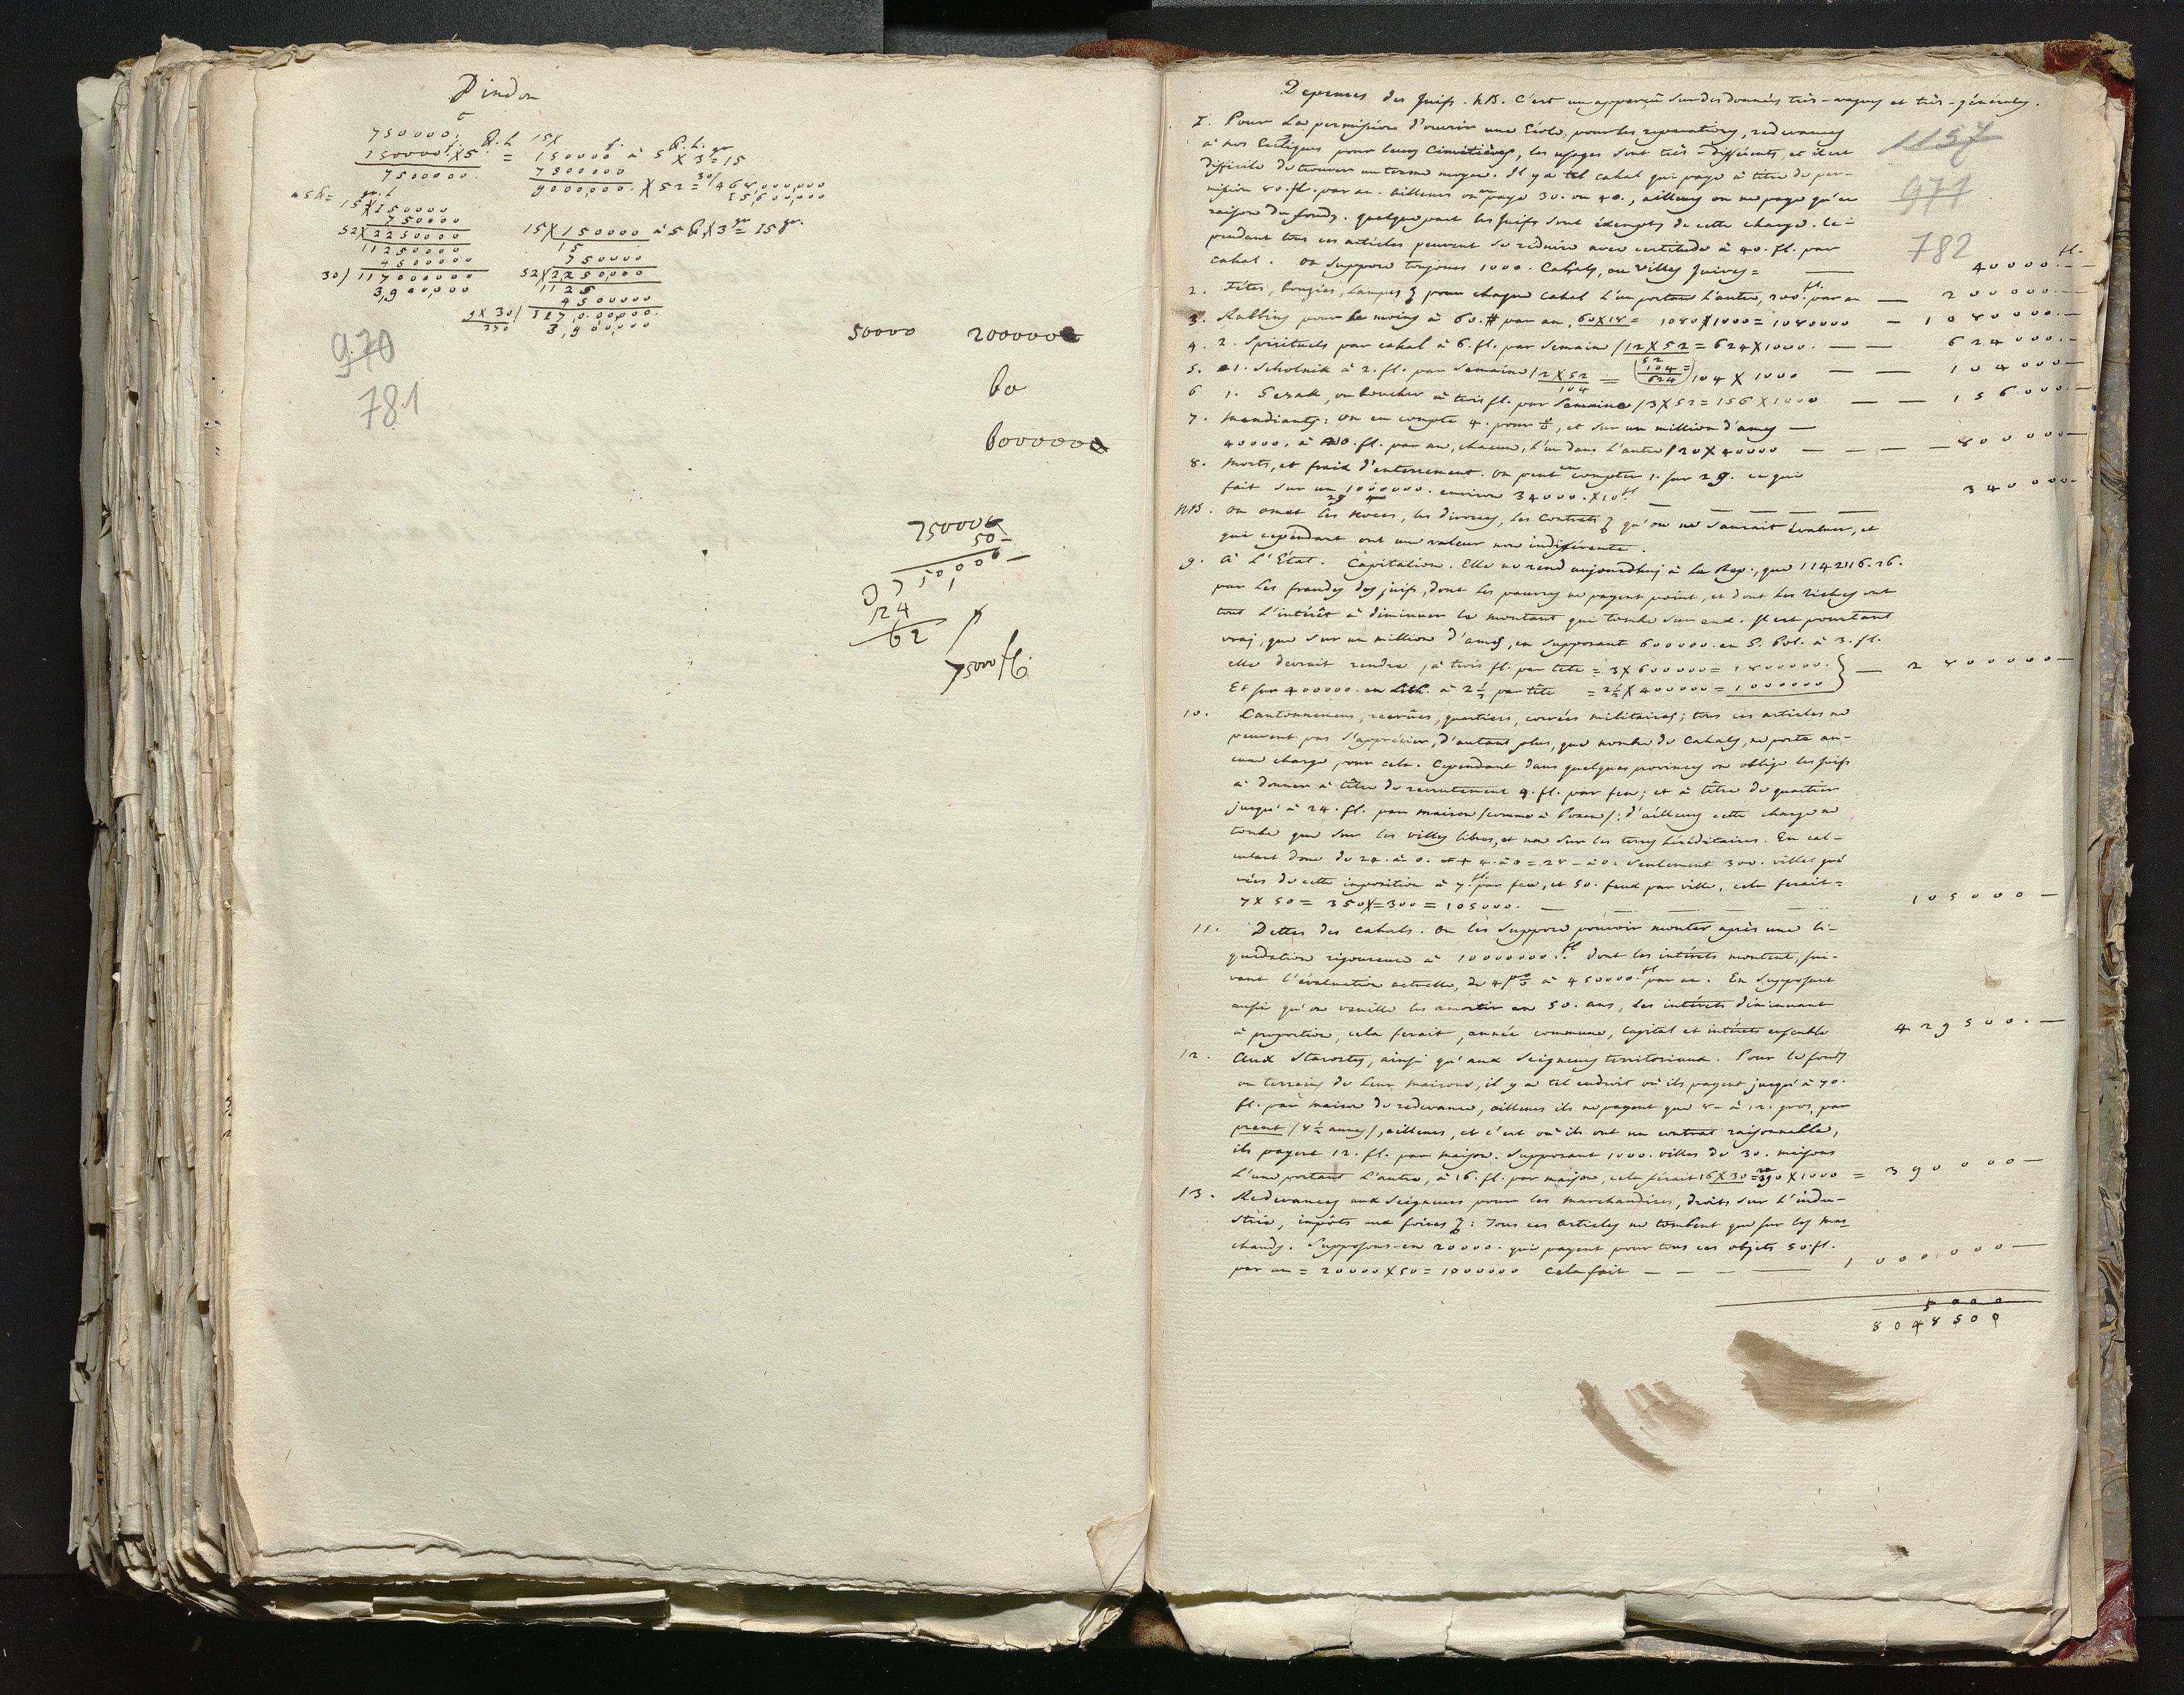 Dindon
750000.
150000. X 5 = 150000 à 5 X 3 = 15
7500000.
7500000
9000,000. X 52 = 30/468,000,000
15,600,000
15 X 150000
750000
52 X 2250000
11250000
4500000
30/ 117000000
3,900,000
15 X 150000 à 5 X 3 = 15 gr.
15
750000
52 X 2,250,000
1125
4500000
9 X 30/ 117,000,000.
270 3,900,000
970
781
50000 200000
60
600000
750000
50
24
62
75000
Depenses des Juifs. NB. C'est un apperçû sur des données très-vagues et très-générales.
1157
977
782
I. Pour la permission d'ouvrir une Ecole, pour les reparations, redevances
à nos Ecclésiques pour leurs Cimetières, les usages sont très-différents, et il est
difficile de trouver un terme moyen. Il y a tel cahal qui paye à titre de per-
mission 80. fl. par an. ailleurs on en paye 30. ou 40., ailleurs on ne paye qu'en
raison du fonds. quelque part les Juifs sont exempts de cette charge. Ce-
pendant tous ces articles peuvent se reduire avec certitude à 40. fl. par
cahal. On suppose toujours 1000. Cahals, ou Villes Juives = — fl. 40000. —
2. Fêtes, bougies, lampes pour chaque Cahal l'un portant l'autre, 200. fl. par an — 200000. —
3. Rabbins pour le moins à 60. # par an, 60X18 = 1080X1000 = 1080000 — 1080000. —
4. 2. Spirituels par cahal à 6. fl. par semaine / 12 X 52 = 624X1000. — — 624000. —
5. 1. Scholnik à 2. fl. par semaine / 2 X 52 = 104 X 1000 — — 104000 —
104
52
104 =
624
6 1. Serak, ou boucher à trois fl. par Semaine / 3X52 = 156 X 1000 — — 156000. —
7. Mendiants: on en compte 4. pour %, et sur un million d'ames —
40000. à 20. fl. par an, chacun, l'un dans l'autre / 20 X 40000 — — — — 800000 —
8. Morts, et fraix d'enterrement. On peut en compter 1. sur 29. ce qui
fait sur un 1000000. environ 34000. X 10 fl — 340000.
29
NB. On omet les Noces, les divorces, les Contrats qu'on ne saurait évaluer, et
qui cependant ont une valeur non indifférente.
9. A l'Etat. Capitation. Elle ne rend aujourdhuj à la Rep., que 1142116.26.
par les fraudes des juifs, dont les pauvres ne payent point, et dont les riches ont
tout l'intérêt à diminuer le montant qui tombe sur eux. Il est pourtant
vraj, que sur un million d'ames, en supposant 600000. en P. Pol. à 3. fl.
elle devrait rendre, à trois fl. par tête = 3X600000 = 1800000. } — 2800000 —
Et sur 400000. en Lith. à 2½ par tête = 2½ X 400000 = 1000000
10. Cantonnemens, recrûes, quartiers, corvées militaires; tous ces articles ne
peuvent pas s'apprécier, d'autant plus, que nombre de Cahals, ne porte au-
cune charge pour cela. Cependant dans quelques provinces on oblige les Juifs
à donner à titre de recrutement 4. fl. par feu; et à titre de quartier
jusqu'à 24. fl. par maison / comme à Posen /; d'ailleurs cette charge ne
tombe que sur les villes libres, et non sur les terres héréditaires. En cal-
culant donc de 24. à 0. et 4. à 0 = 28 - à 0. seulement 300. villes gré-
vées de cette imposition à 7. fl. par feu, et 50. feux par ville, cela ferait =
7 X 50 = 350 X = 300 = 105000. — — — — 105000 —
11. Dettes des Cahals. On les suppose pouvoir monter après une li-
quidation rigoureuse à 10000000. fl dont les intérêts montent, sui-
vant l'évaluation actuelle, de 4 p % à 450000. fl par an. En supposant
aussi qu'on veuille les amortir en 50. ans, les intérêts diminuant
à proportion, cela ferait, année commune, Capital et intérêts ensemble 429500. —
12. Aux Starostes, ainsi qu'aux Seigneurs territoriaux. Pour le fonds
ou terrein de leur maisons, il y a tel endroit où ils payent jusqu'à 70.
fl. par maison de redevance, ailleurs ils ne payent que 8 - à 12. gros, par
prent / 8½ aunes /, ailleurs, et c'est où ils ont un contrat raisonnable,
ils payent 12. fl. par maison. Supposant 1000. villes de 30. maisons
l'une portant l'autre, à 16. fl. par maison, cela ferait 16 X 30 = 390 X 1000 = 390000 —
13. Redevances aux Seigneurs pour les marchandises, droits sur l'indu-
strie, impôts aux foires: Tous ces articles ne tombent que sur les mar-
chands. Supposons-en 20000. qui payent pour tous ces objets 50. fl.
par an = 20000X50 = 1000000 Cela fait — — — — 1000000 —
5000
8048500